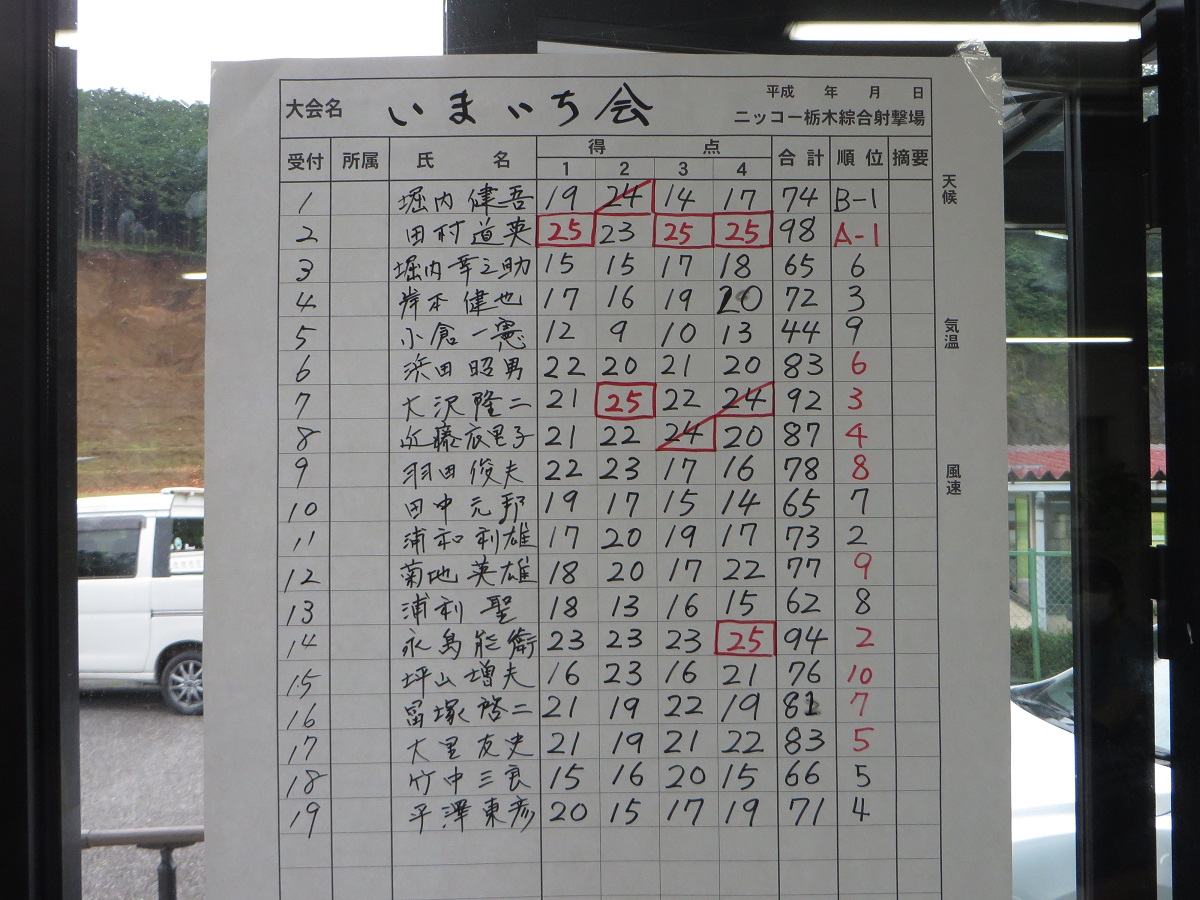 大会名 いまいち会 平成 年 月 日
ニッコー栃木綜合射撃場
受付 所属 氏 名 得 点 合計 順位 摘要
1 2 3 4
1 堀内健吾 19 24 14 17 74 B-1
2 田村道英 25 23 25 25 98 A-1
3 堀内幸之助 15 15 17 18 65 6
4 岸本健也 17 16 19 20 72 3
5 小倉一憲 12 9 10 13 44 9
6 浜田昭男 22 20 21 20 83 6
7 大沢隆二 21 25 22 24 92 3
8 近藤衣里子 21 22 24 20 87 4
9 羽田俊夫 22 23 17 16 78 8
10 田中元邦 19 17 15 14 65 7
11 浦和利雄 17 20 19 17 73 2
12 菊地英雄 18 20 17 22 77 9
13 浦利聖 18 13 16 15 62 8
14 永島能衛 23 23 23 25 94 2
15 坪山増夫 16 23 16 21 76 10
16 冨塚啓二 21 19 22 19 81 7
17 大里友史 21 19 21 22 83 5
18 竹中三良 15 16 20 15 66 5
19 平澤東彦 20 15 17 19 71 4
天候
気温
風速